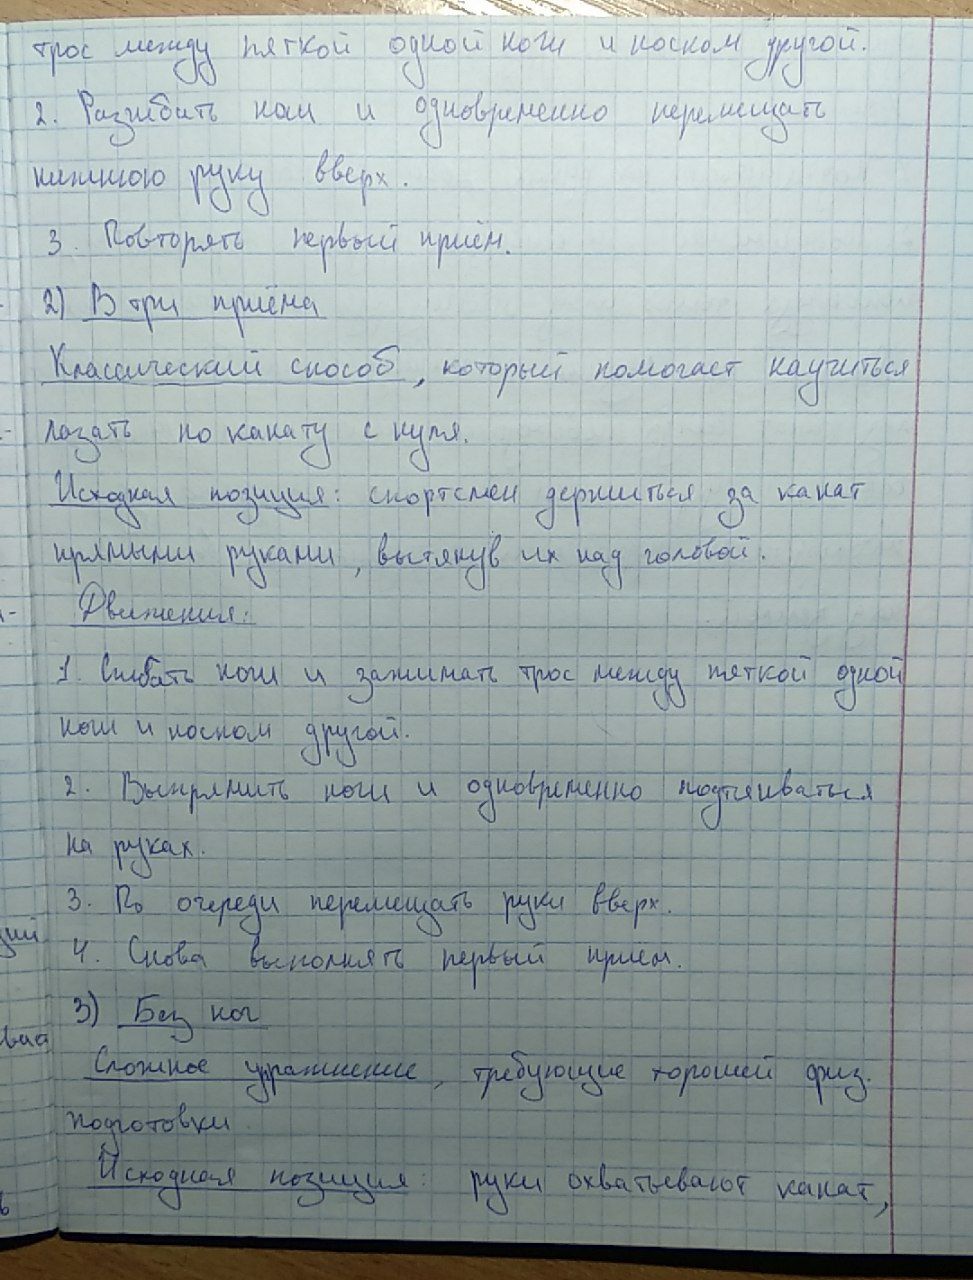 трос между пяткой одной ноги и носком другой.
2. Разгибать ноги и одновременно перемещать
нижнюю руку вверх.
3. Повторять первый приём.
2) В три приёма
Классический способ, который помогает научиться
лазать по канату с нуля.
Исходная позиция: спортсмен держиться за канат
прямыми руками, вытянув их над головой.
Движения:
1. Сгибать ноги и зажимать трос между пяткой одной
ноги и носком другой.
2. Выпрямить ноги и одновременно подтягиваться
на руках.
3. По очереди перемещать руки вверх.
4. Снова выполнять первый приём.
3) Без ног
Сложное упражнение, требующие хорошей физ.
подготовки
Исходная позиция: руки охватывают канат,